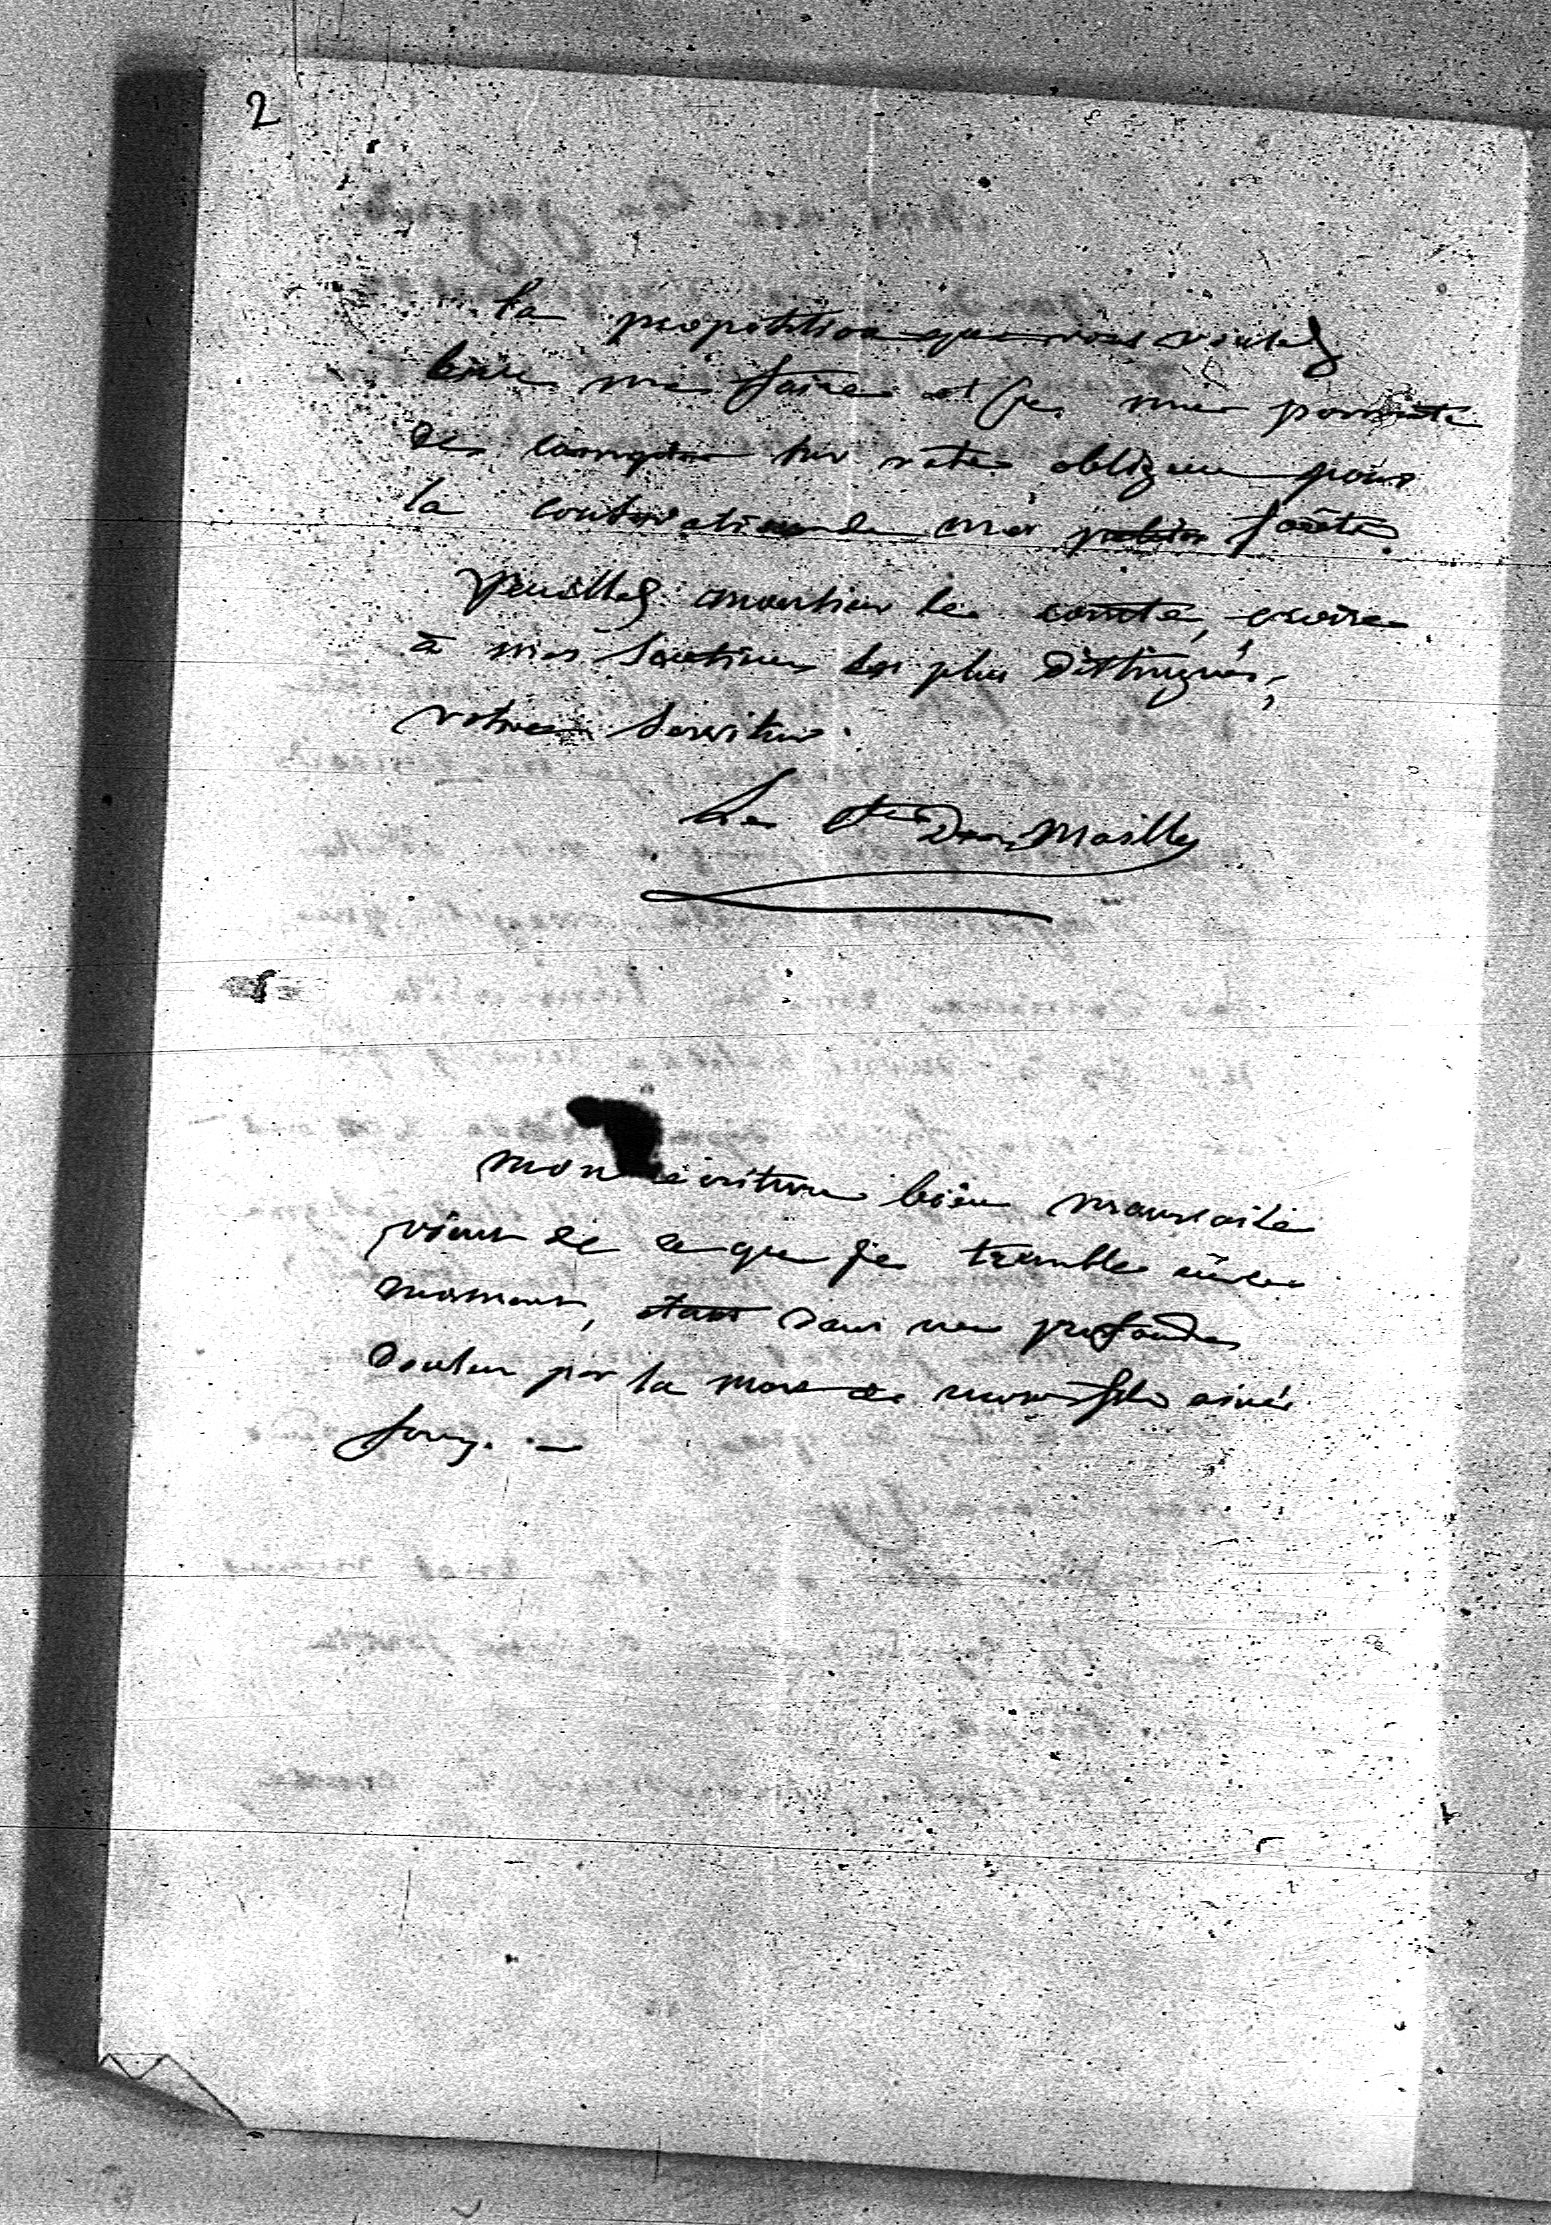 2
la proposition que vous voulez
bien me faire et je me permets
de compter sur votre obligeance pour
la conservation de mes forêts.
Veuillez monsieur le comte, croire
à mes sentimens les plus distingués,
votre serviteur.
Le Cte De Mailly
mon écriture bien mauvaise
vient de ce que je tremble en ce
moment, étant dans une profonde
douleur par la mort de mon fils ainé